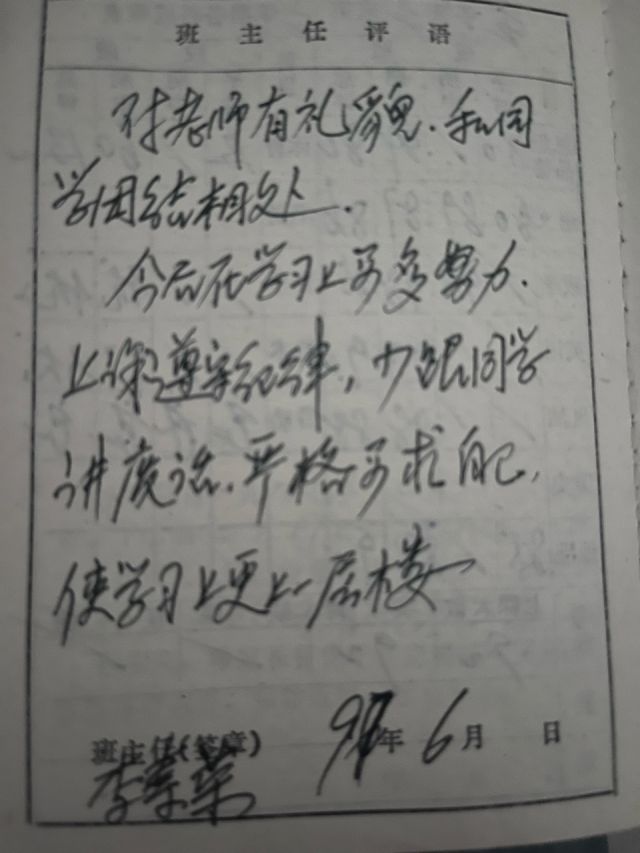 班主任评语
对老师有礼貌.和同
学团结相处.
今后在学习上要多努力.
上课遵守纪律,少跟同学
讲废话.严格要求自己,
使学习上更上一层楼
班主任(签章) 97年6月 日
李